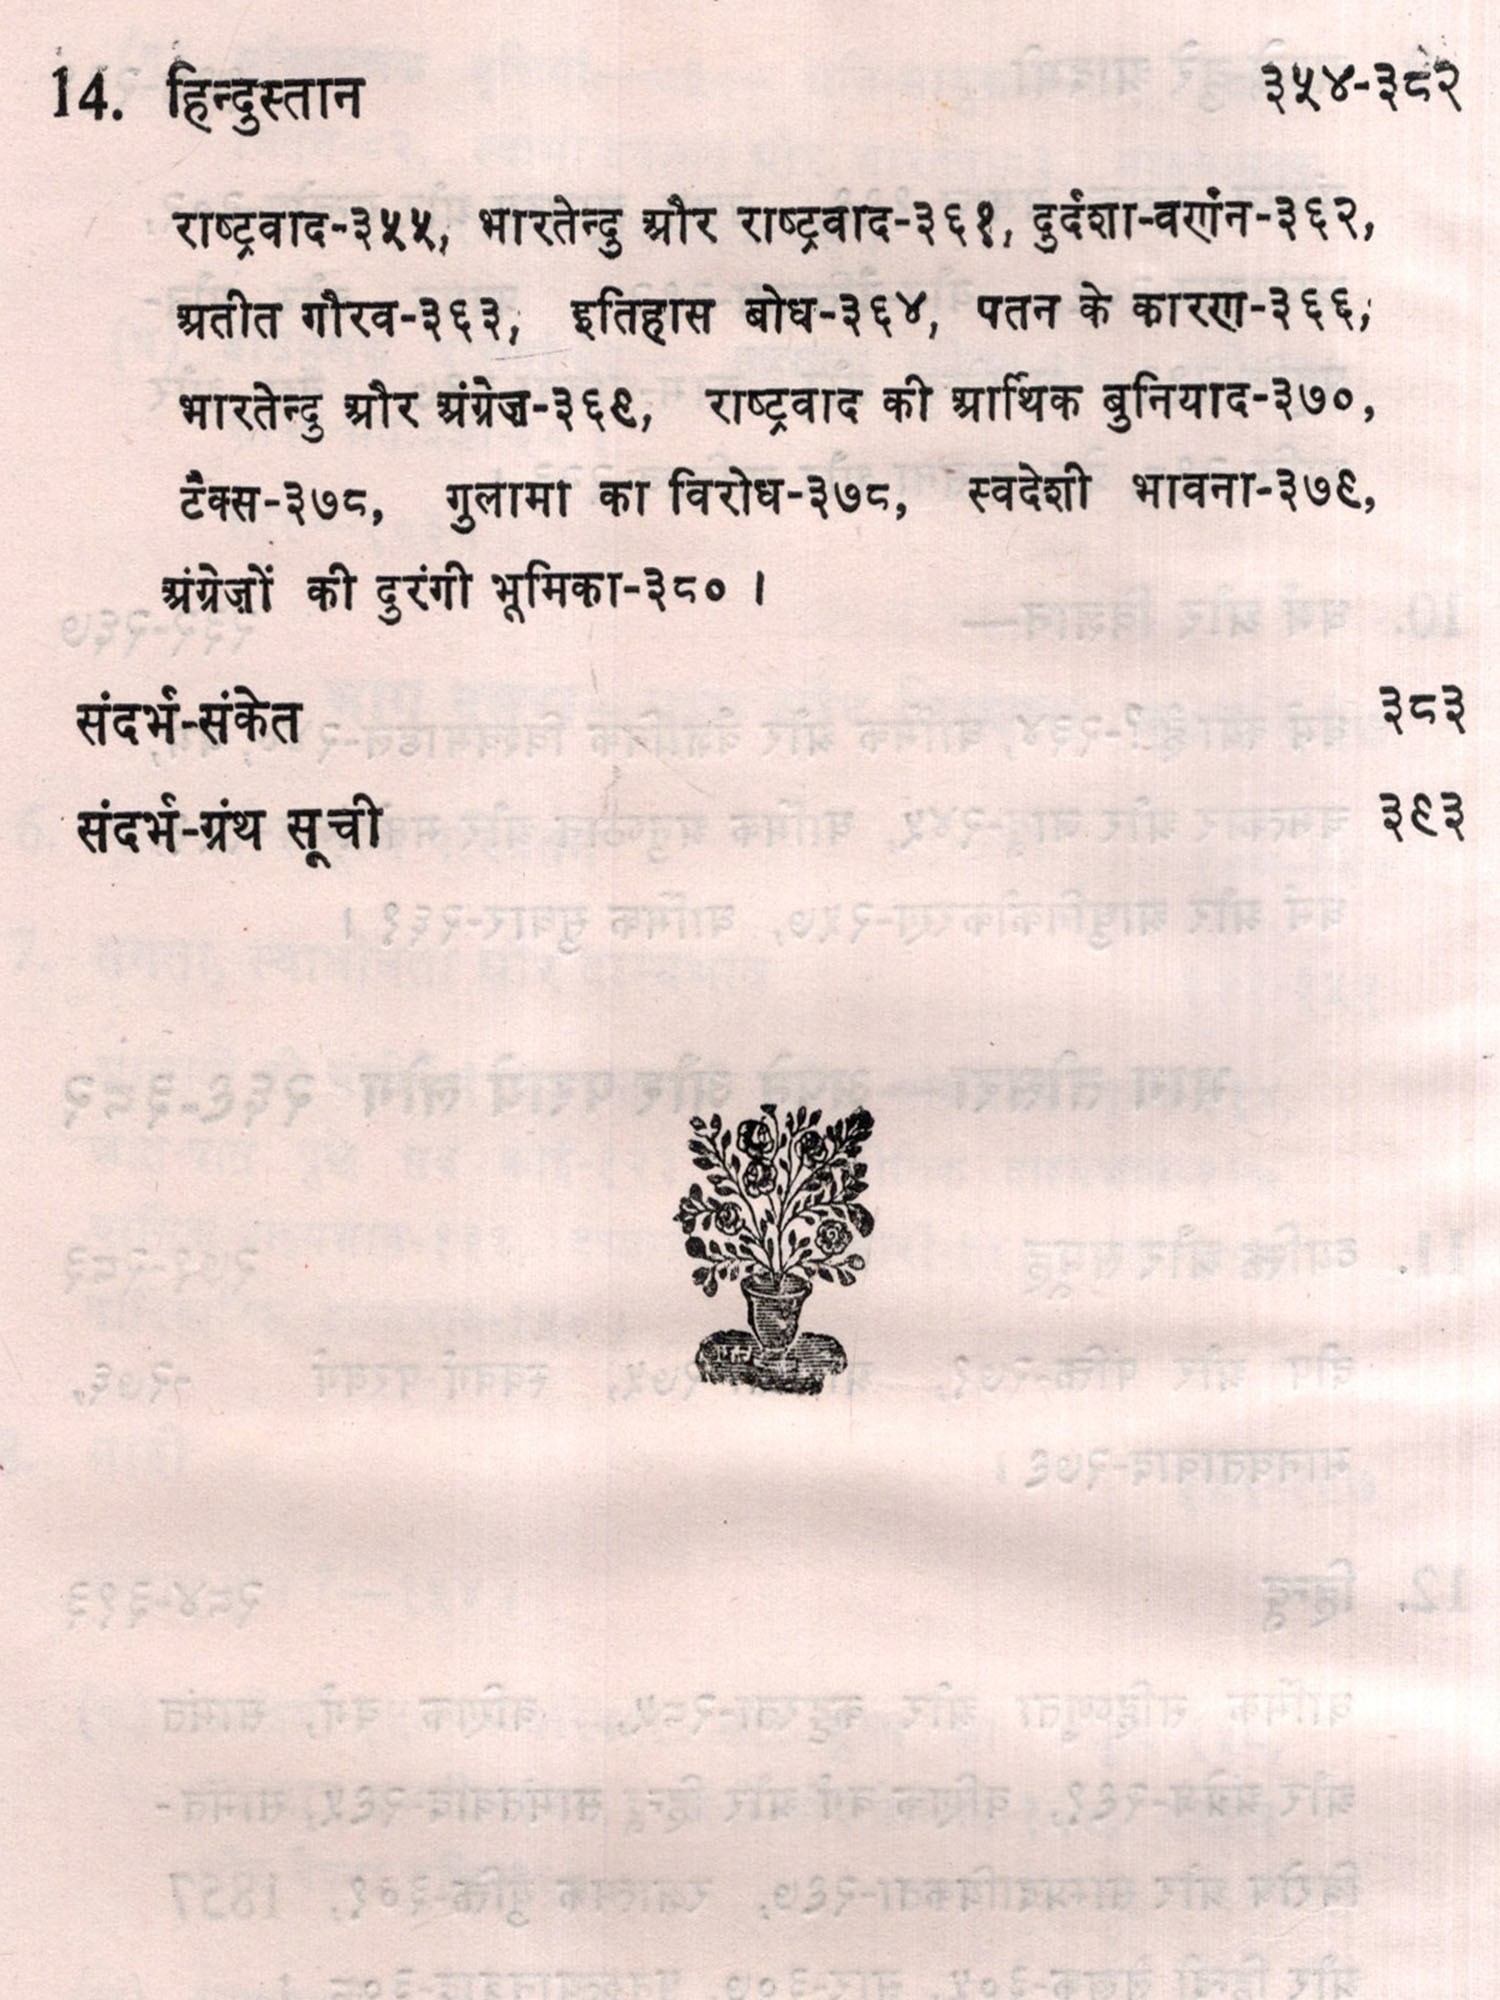 14. हिन्दुस्तान ३५४-३८२
राष्ट्रवाद-३५५, भारतेन्दु और राष्ट्रवाद-३६१, दुर्दशा-वर्णन-३६२,
अतीत गौरव-३६३, इतिहास बोध-३६४, पतन के कारण-३६६,
भारतेन्दु और अंग्रेज-३६९, राष्ट्रवाद की आर्थिक बुनियाद-३७०,
टैक्स-३७८, गुलामा का विरोध-३७८, स्वदेशी भावना-३७९,
अंग्रेज़ों की दुरंगी भूमिका-३८० ।
संदर्भ-संकेत ३८३
संदर्भ-ग्रंथ सूची ३९३